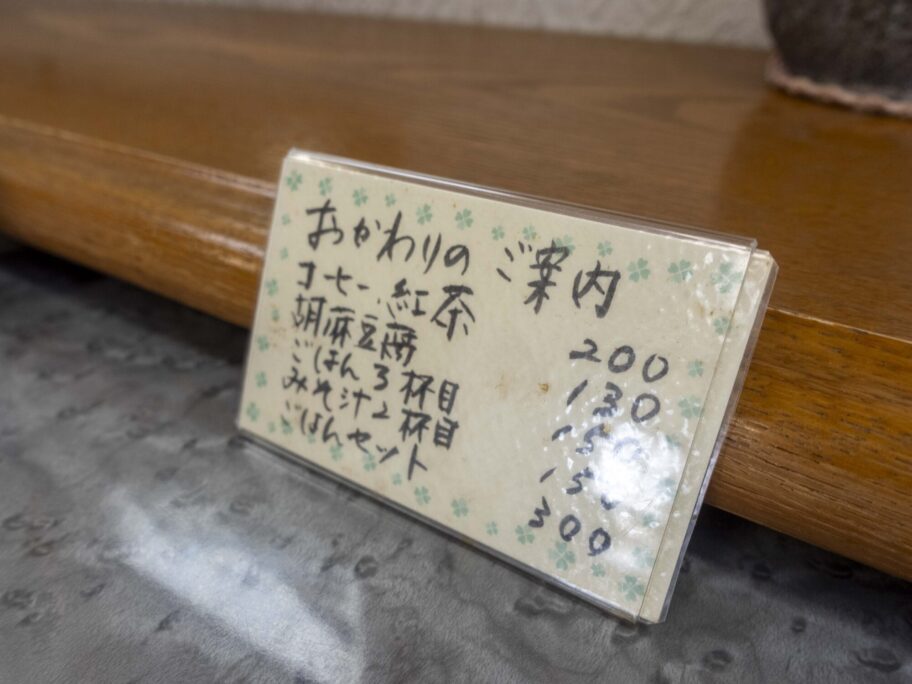 おかわりの ご案内
コーヒー.紅茶 200
胡麻豆腐 130
ごはん3杯目 150
みそ汁2杯目 150
ごはんセット 300